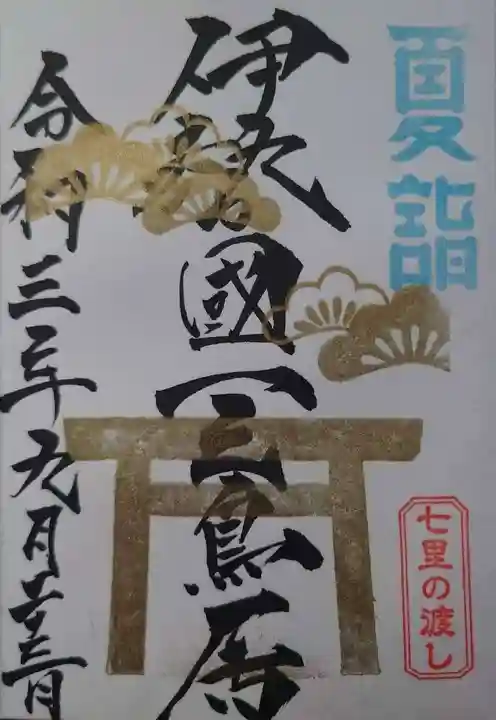 夏詣
七里の渡し
伊勢國一之鳥居
令和三年九月廿三日